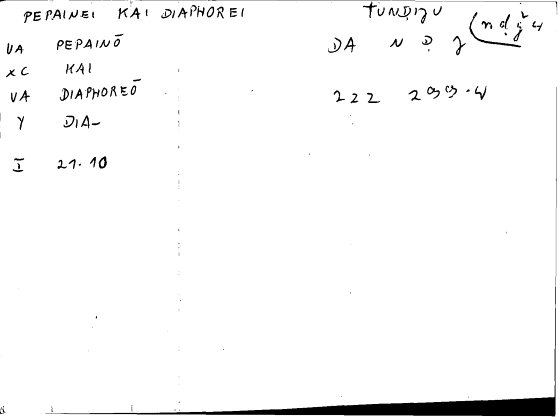 PEPAINEI KAI DIAPHOREI
VA PEPAINŌ
XC KAI
VA DIAPHOREŌ
Y DIA-
I 21.10
TUNDIJU
DA N Ḍ
222